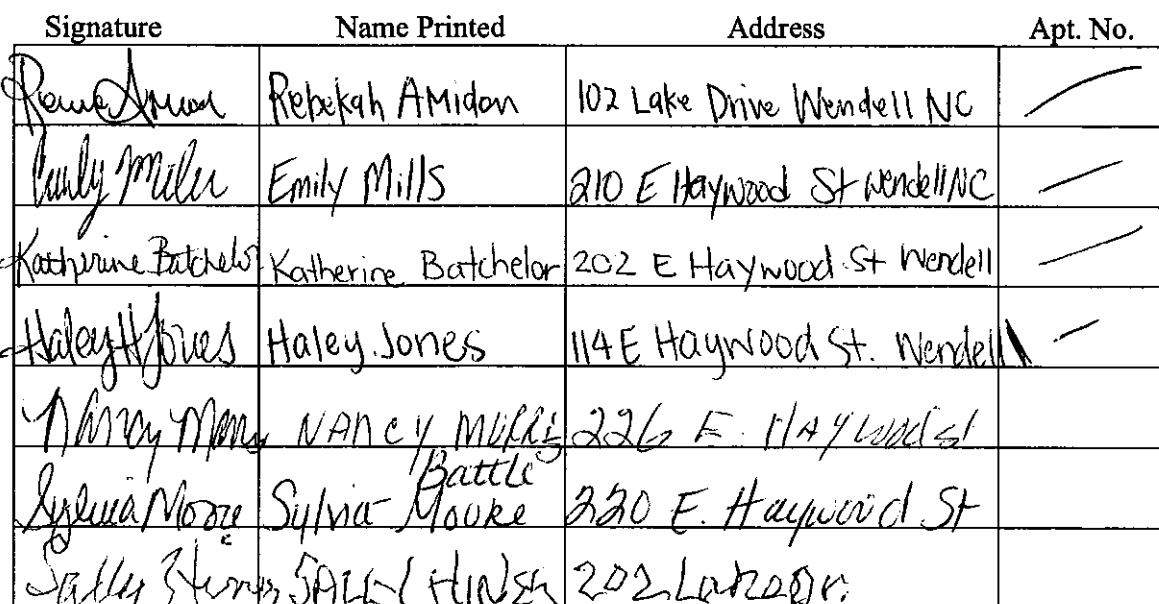 Signature Name Printed Address Apt. No.
Rebekah Amidon 102 Lake Drive Wendell NC
Emily Mills 210 E Haywood St Wendell NC
Katherine Batchelor Katherine Batchelor 202 E Haywood St Wendell
Haley H Jones Haley Jones 114 E Haywood St. Wendell
Nancy NANCY 226 E. HAYwood st
Battle
Sylvia Moore Sylvia Moore 220 E. Haywood St
Sally SALLY 202 Lake Dr.